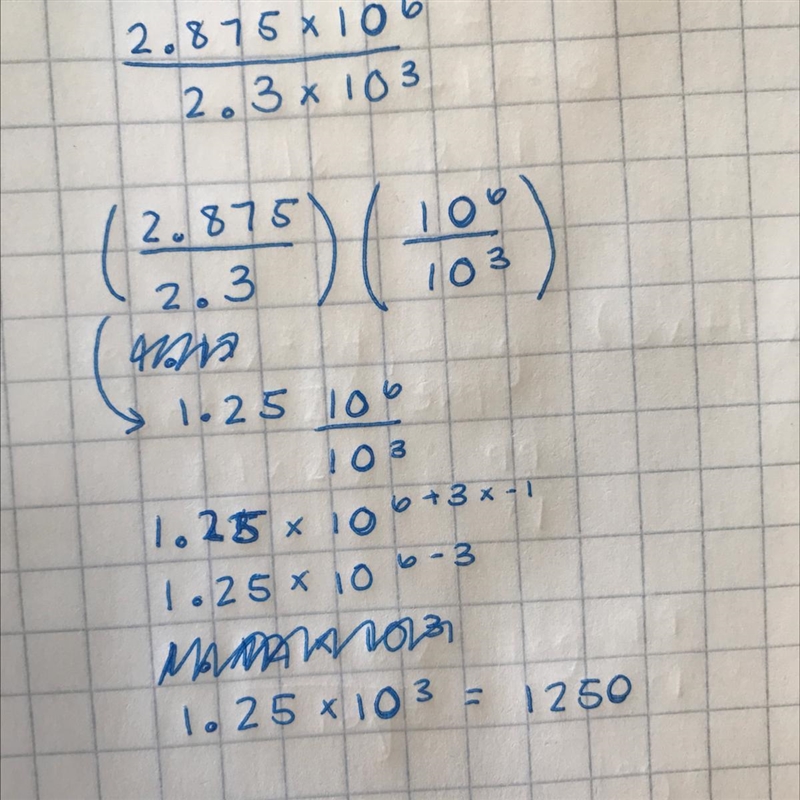 2.875 × 10⁶
2.3 × 10³
(2.875/2.3) (10⁶/10³)
1.25 10⁶/10³
1.25 × 10⁶⁺³ˣ⁻¹
1.25 × 10⁶⁻³
1.25 × 10³ = 1250